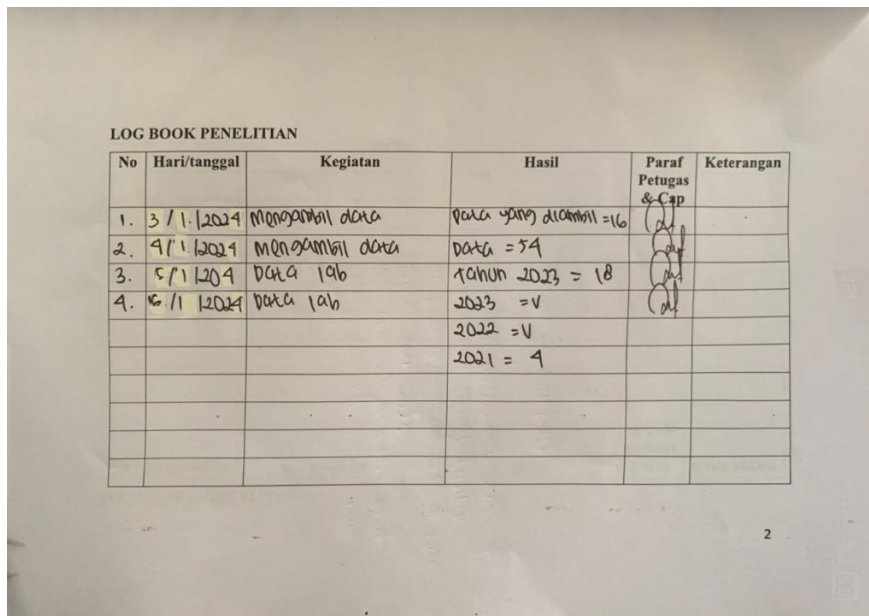 LOG BOOK PENELITIAN
No Hari/tanggal Kegiatan Hasil Paraf Petugas & Cap Keterangan
1. 3/1/2024 Mengambil data Data yang diambil = 16
2. 4/1/2024 Mengambil data Data = 54
3. 5/1/204 Data lab Tahun 2023 = 18
4. /1/2024 Data lab 2023 = V
2022 = V
2021 = 4
2